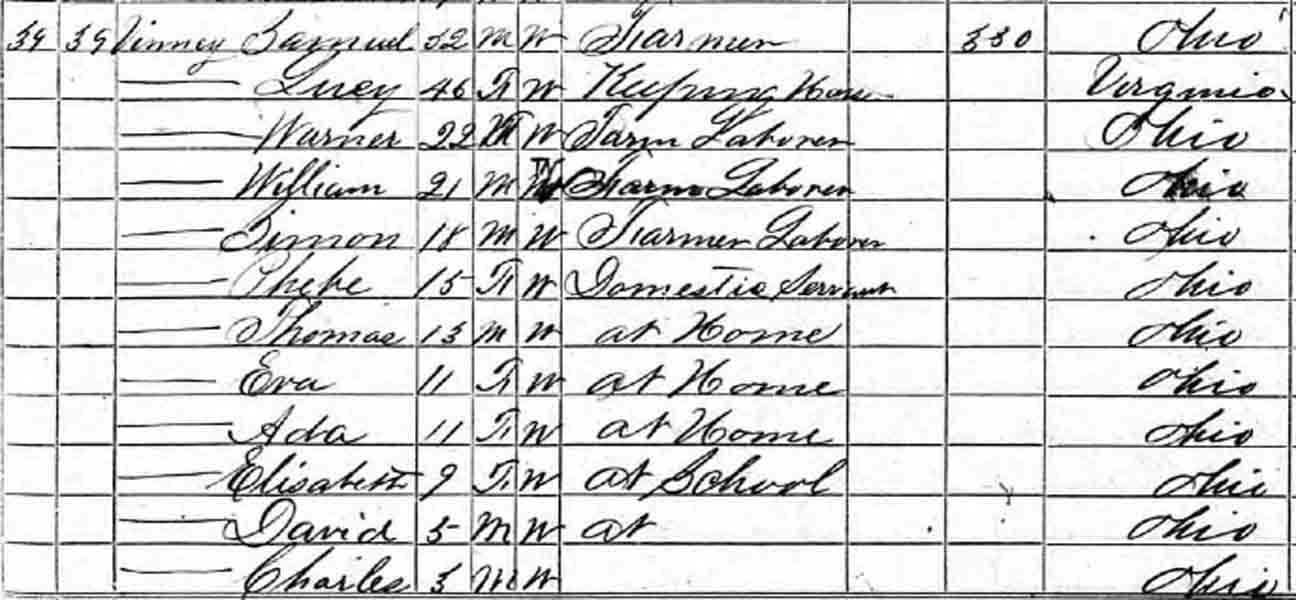 39 39 Vinney Samuel 52 M W Farmer 350 Ohio
Lucy 46 F W Keeping House Virginia
Warner 22 M W Farm Laborer Ohio
William 21 M W Farm Laborer Ohio
Simon 18 M W Farmer Laborer Ohio
Phebe 15 F W Domestic Servant Ohio
Thomas 13 M W at Home Ohio
Eva 11 F W at Home Ohio
Ada 11 F W at Home Ohio
Elisabeth 9 F W at School Ohio
David 5 M W at Ohio
Charles 3 M W Ohio